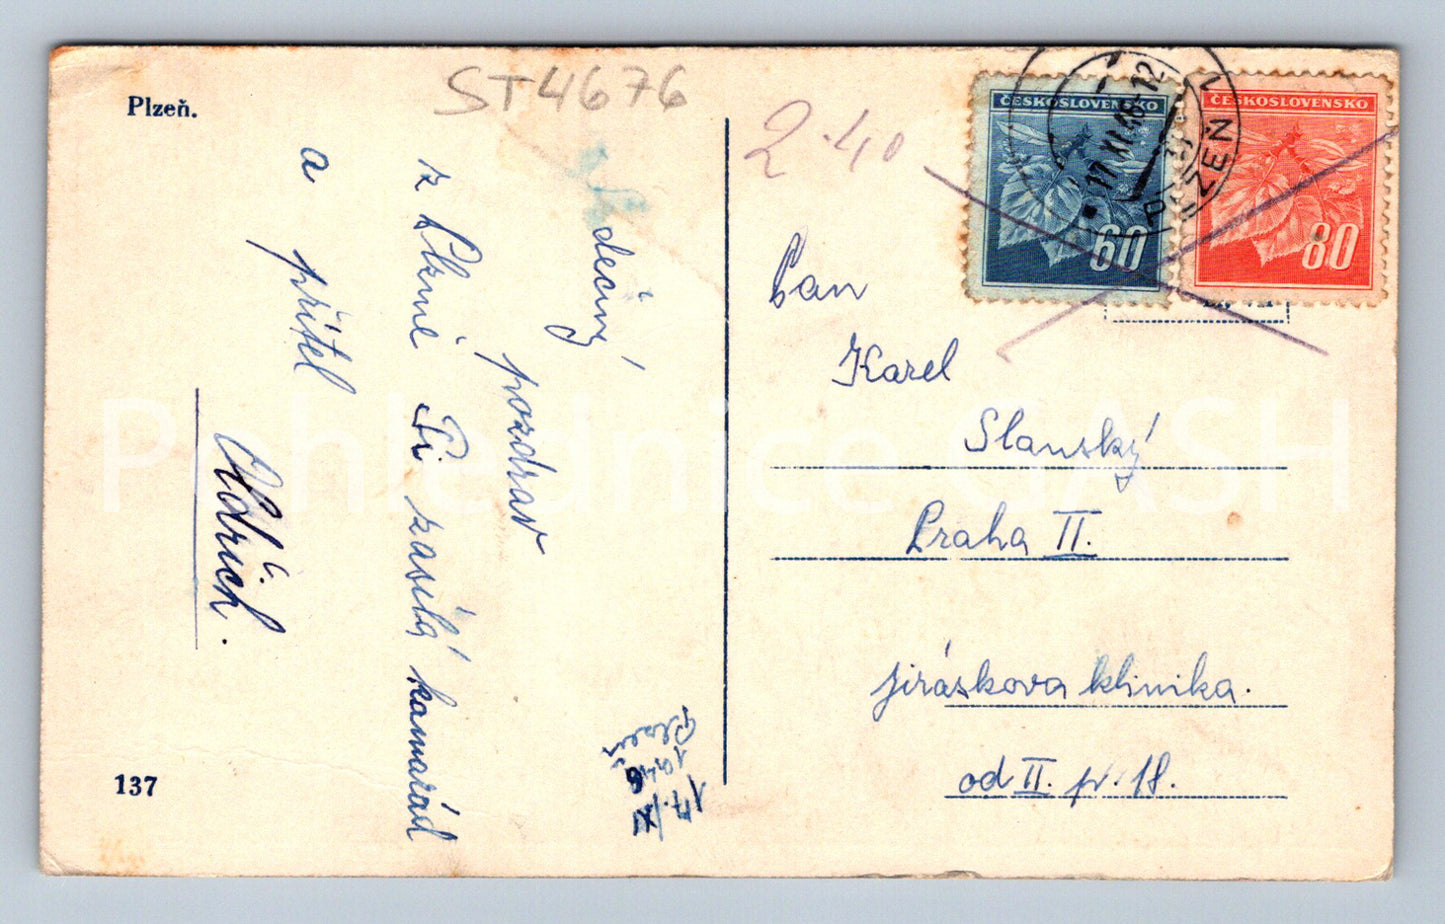 Plzeň.
ST4676
2.40
ČESKOSLOVENSKO
60
ČESKOSLOVENSKO
80
PLZEŇ 1
17 XI
Srdečný
pozdrav
z Plzně Ti zasílá kamarád
a přítel
Oldřich.
17./XI
1946
Plzeň
137
Pan
Karel
Slanský
Praha II.
Jiráskova klinika.
od II. p. 18.
Pohlednice GASH